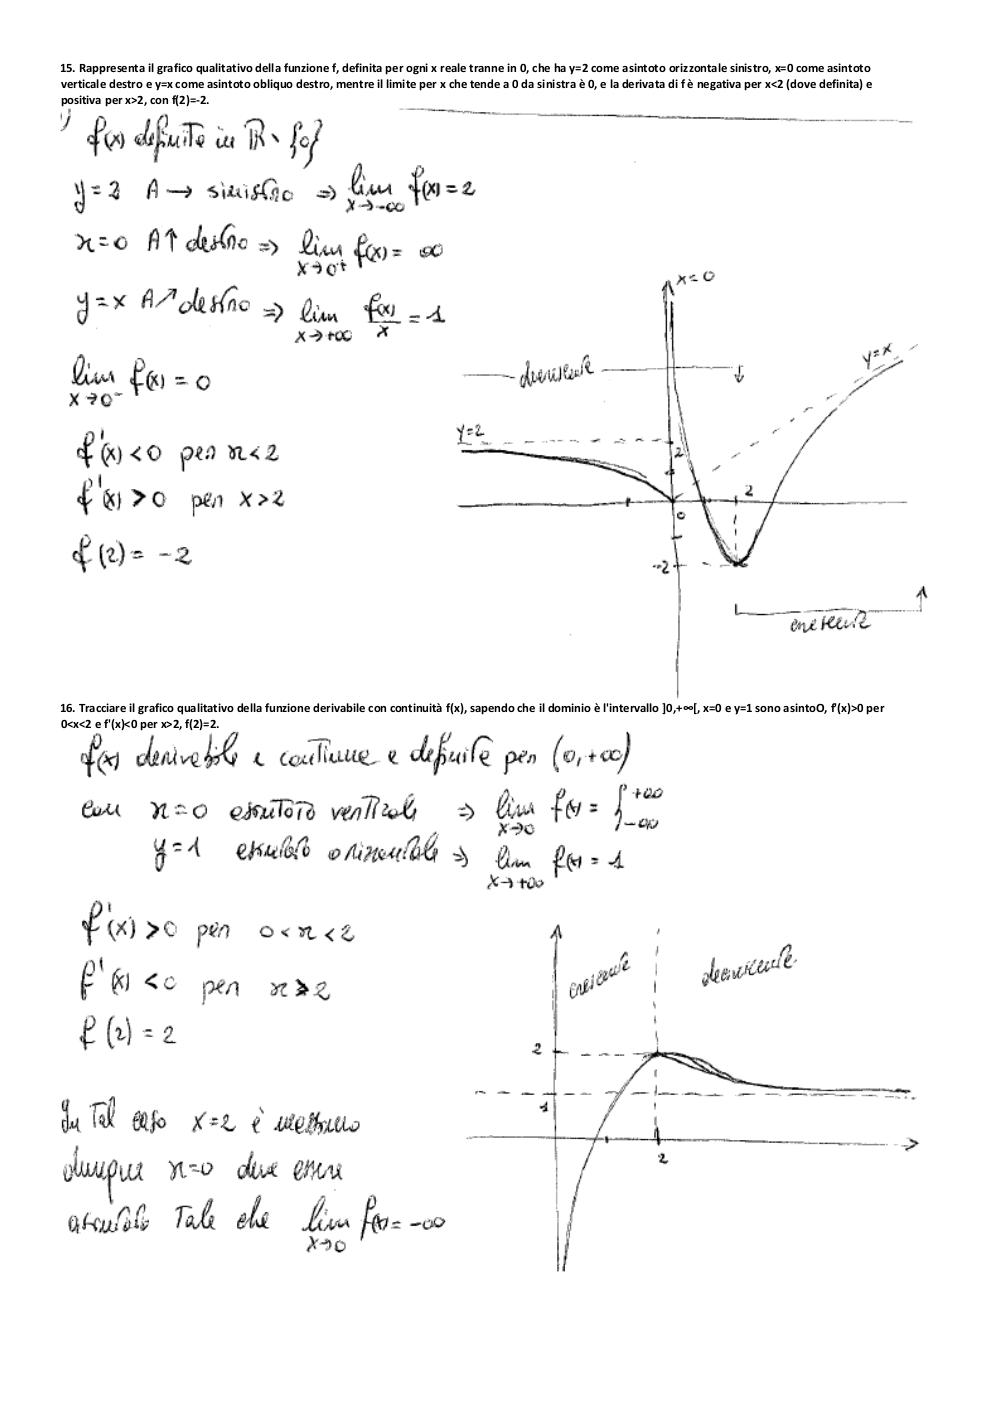 15. Rappresenta il grafico qualitativo della funzione f, definita per ogni x reale tranne in 0, che ha y=2 come asintoto orizzontale sinistro, x=0 come asintoto
verticale destro e y=x come asintoto obliquo destro, mentre il limite per x che tende a 0 da sinistra è 0, e la derivata di f è negativa per x<2 (dove definita) e
positiva per x>2, con f(2)=-2.
f(x) definita in R \ {0}
y=2 A → sinistro ⇒ lim x→-∞ f(x) = 2
x=0 A↑ destro ⇒ lim x→0+ f(x) = ∞
y=x A↗ destro ⇒ lim x→+∞ f(x)/x = 1
lim x→0- f(x) = 0
f'(x) <0 per x<2
f'(x) >0 per x>2
f(2) = -2
x=0
y=x
decrescente
y=2
2
2
0
-2
crescente
16. Tracciare il grafico qualitativo della funzione derivabile con continuità f(x), sapendo che il dominio è l'intervallo ]0,+∞[, x=0 e y=1 sono asintoO, f'(x)>0 per
0<x<2 e f'(x)<0 per x>2, f(2)=2.
f(x) derivabile e continua e definita per (0,+∞)
con x=0 asintoto verticale ⇒ lim x→0 f(x) = { +∞ -∞
y=1 asintoto orizzontale ⇒ lim x→+∞ f(x) = 1
f'(x) >0 per 0<x<2
f'(x) <0 per x>2
f(2) = 2
crescente
decrescente
2
1
2
In Tal caso x=2 è massimo
dunque x=0 deve essere
asintoto Tale che lim x→0 f(x) = -∞